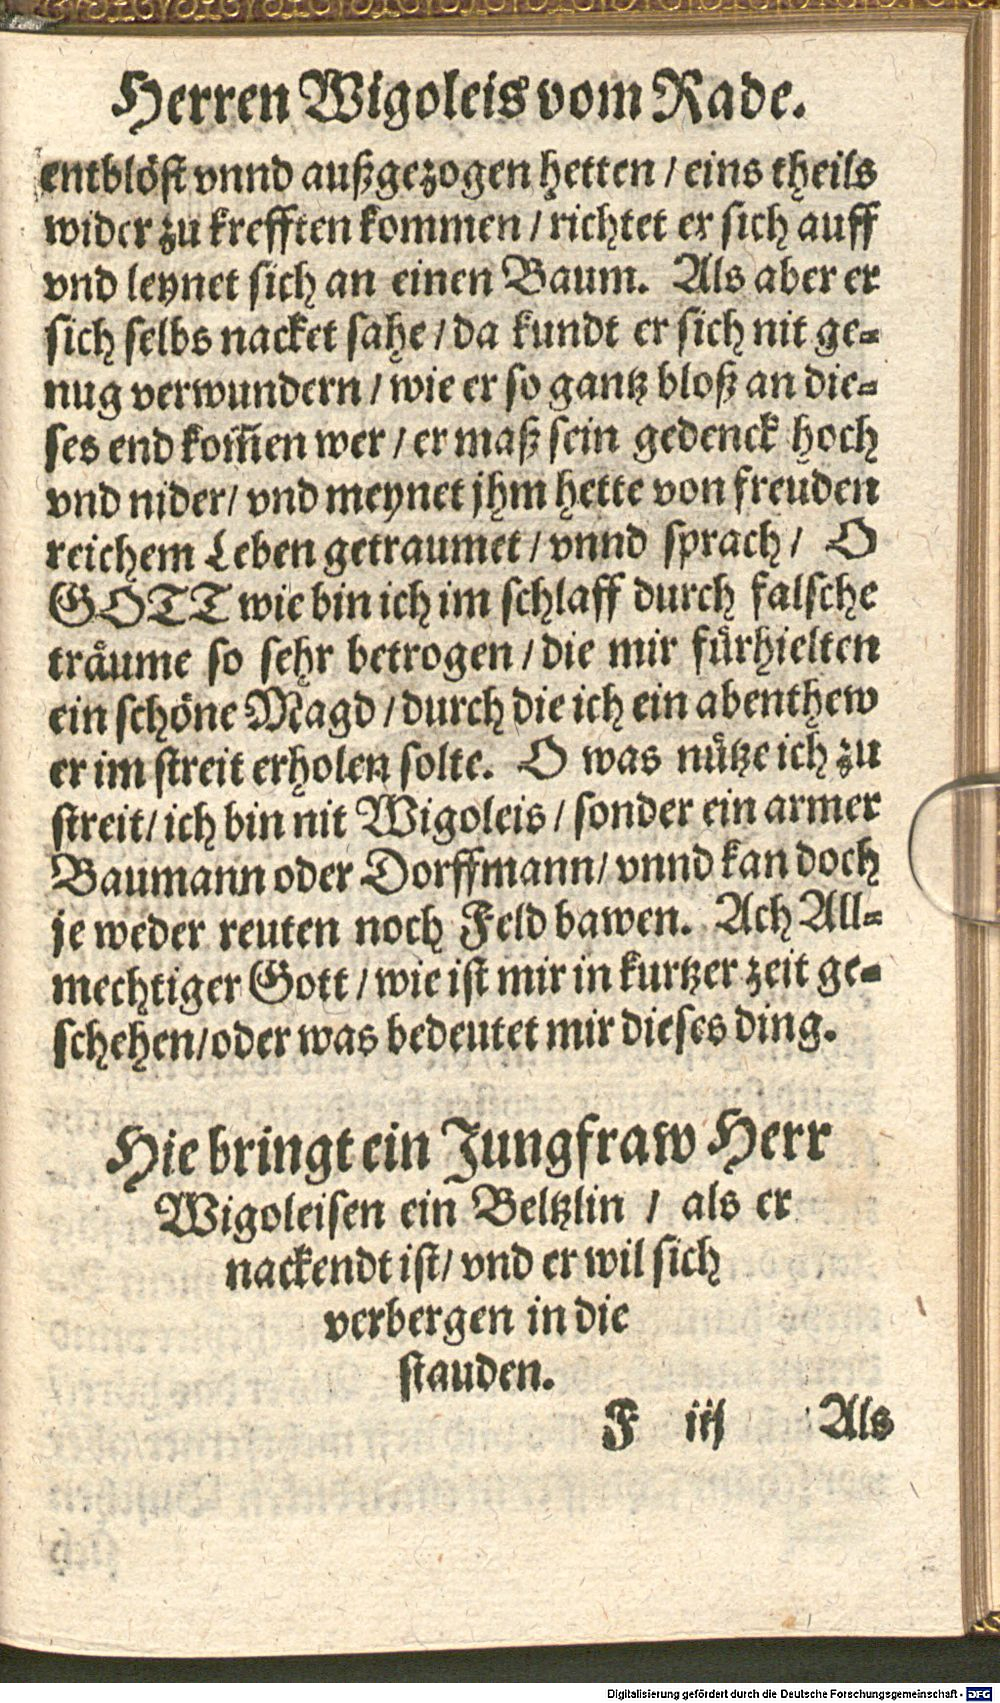 Herren Wigoleis vom Rade.
entblöst vnnd außgezogen hetten / eins theils
wider zu krefften kommen / richtet er sich auff
vnd leynet sich an einen Baum. Als aber er
sich selbs nacket sahe / da kundt er sich nit ge-
nug verwundern / wie er so gantz bloß an die-
ses end kom̃en wer / er maß sein gedenck hoch
vnd nider / vnd meynet jhm hette von freuden
reichem Leben getraumet / vnnd sprach / O
GOTT wie bin ich im schlaff durch falsche
träume so sehr betrogen / die mir fürhielten
ein schöne Magd / durch die ich ein abenthew
er im streit erholen solte. O was nütze ich zu
streit / ich bin nit Wigoleis / sonder ein armer
Baumann oder Dorffmann / vnnd kan doch
je weder reuten noch Feld bawen. Ach All-
mechtiger Gott / wie ist mir in kurtzer zeit ge-
schehen / oder was bedeutet mir dieses ding.
Hie bringt ein Jungfraw Herr
Wigoleisen ein Beltzlin / als er
nackendt ist / vnd er wil sich
verbergen in die
stauden.
F iij Als
Digitalisierung gefördert durch die Deutsche Forschungsgemeinschaft - DFG